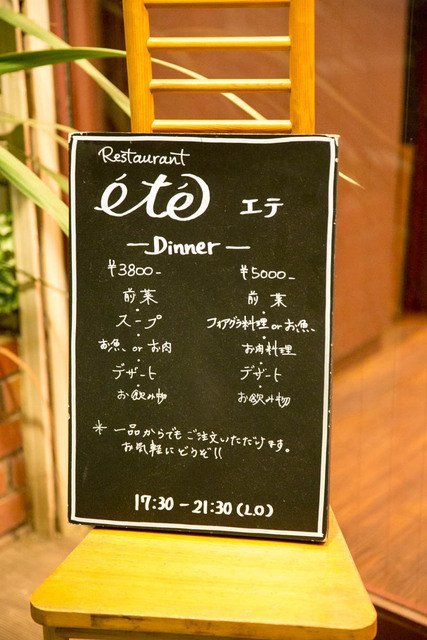 Restaurant
été エテ
—Dinner—
¥3800-
前菜
・
スープ
・
お魚 or お肉
・
デザート
・
お飲み物
¥5000-
前菜
・
フォアグラ料理 or お魚
・
お肉料理
・
デザート
・
お飲み物
＊一品からでもご注文いただけます。
お気軽にどうぞ!!
17:30-21:30(L.O)